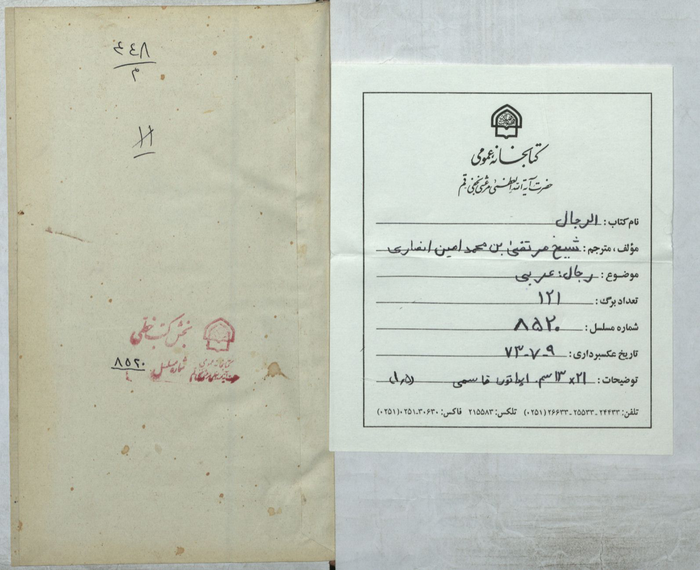 کتابخانه عمومی
حضرت آیة الله العظمی مرعشی نجفی قم
نام کتاب: الرجال
مؤلف، مترجم: شیخ مرتضی بن محمد امین انصاری
موضوع: رجال؛ عربی
تعداد برگ: ۱۲۱
شماره مسلسل: ۸۵۲۰
تاریخ عکسبرداری: ۹-۷-۷۳
توضیحات: ۲۱×۱۳سم. اپراتور: قاسمی (۱٫۵)
تلفن: ۲۴۴۳۳-۲۵۵۳۳-۲۶۶۳۳(۰۲۵۱) تلکس: ۲۱۵۵۸۳ فاکس: ۳۰۶۳۰-۰۲۵۱(۰۲۵۱)
بخش کتب خطی
شماره مسلسل ۸۵۲۰